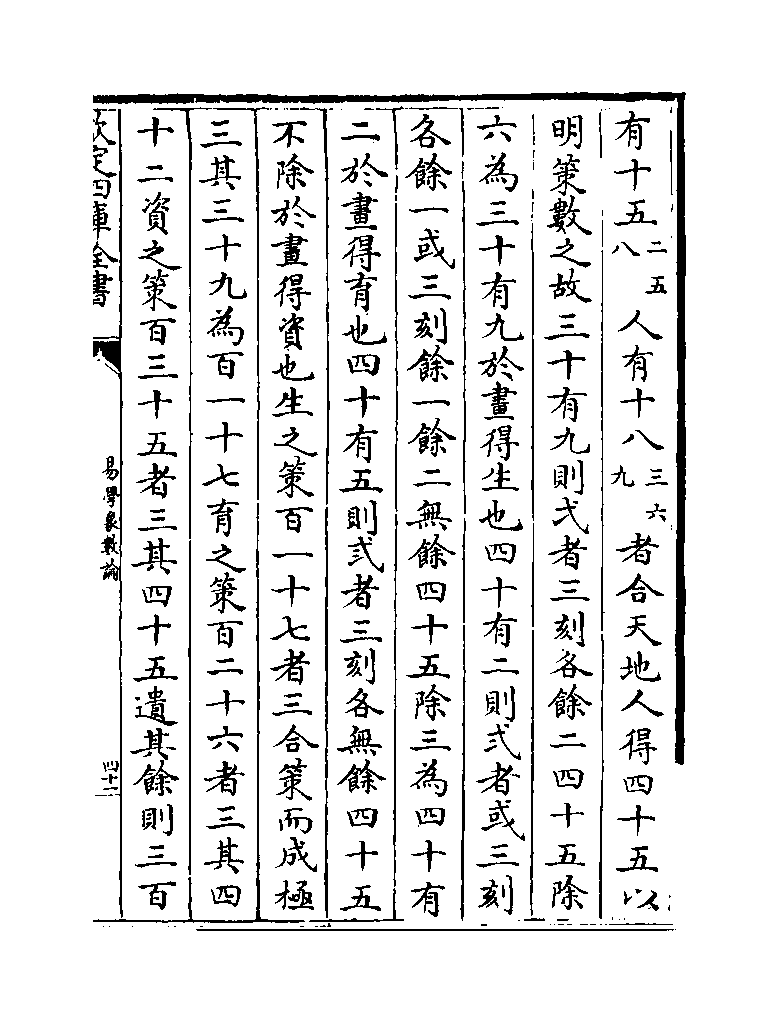 有十五二五八人有十八三六九者合天地人得四十五以
明策數之故三十有九則弌者三刻各餘二四十五除
六為三十有九於畫得生也四十有二則弍者或三刻
各餘一或三刻餘一餘二無餘四十五除三為四十有
二於畫得育也四十有五則弎者三刻各無餘四十五
不除於畫得資也生之策百一十七者三合策而成極
三其三十九為百一十七育之策百二十六者三其四
十二資之策百三十五者三其四十五遺其餘則三百
欽定四庫全書
易學象數論
四十二